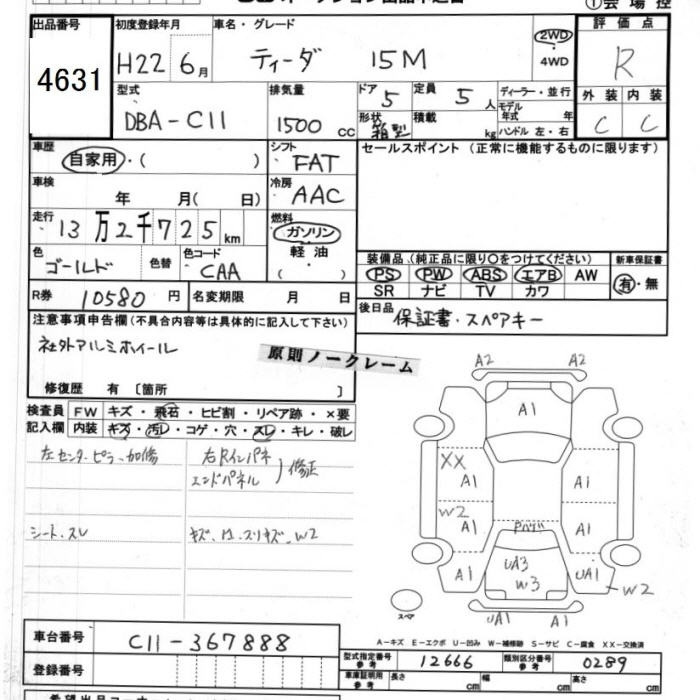 ①会場控
出品番号 初度登録年月 車名・グレード 評価点
4631 H22 6月 ティーダ 15M 2WD R
4WD
型式 排気量 ドア 定員 ディーラー・並行 外装 内装
DBA-C11 1500cc 5 5人 モデル年式 年 C C
形状 箱型 積載 kg ハンドル 左・右
車歴 シフト セールスポイント(正常に機能するものに限ります)
自家用・( ) FAT
車検 冷房
年 月( 日) AAC
走行 燃料
13万2千725km ガソリン
色 色コード 軽油
ゴールド 色替 CAA ( )
装備品(純正品に限り○をつけてください) 新車保証書
PS PW ABS エアB AW 有・無
SR ナビ TV カワ
R券 10580円 名変期限 月 日
後日品 保証書・スペアキー
注意事項申告欄(不具合内容等は具体的に記入して下さい)
社外アルミホイール
原則ノークレーム
修復歴 有〔箇所 〕
検査員 FW キズ・飛石・ヒビ割・リペア跡・×要
記入欄 内装 キズ・汚レ・コゲ・穴・スレ・キレ・破レ
左センターピラー加修
右Rインパネ
エンドパネル 修正
シート、スレ
W2
A2 A2
A1
XX A1 A1
W2 A1 A1
A1 UA3 UA1
W3 W2
UA1 A1
スペア
A-キズ E-エクボ U-凹み W-補修跡 S-サビ C-腐食 XX-交換済
車台番号 C11-367888
型式指定番号 参考 12666 類別区分番号 参考 0289
登録番号
車庫証明用 参考 長さ cm 幅 cm 高さ cm